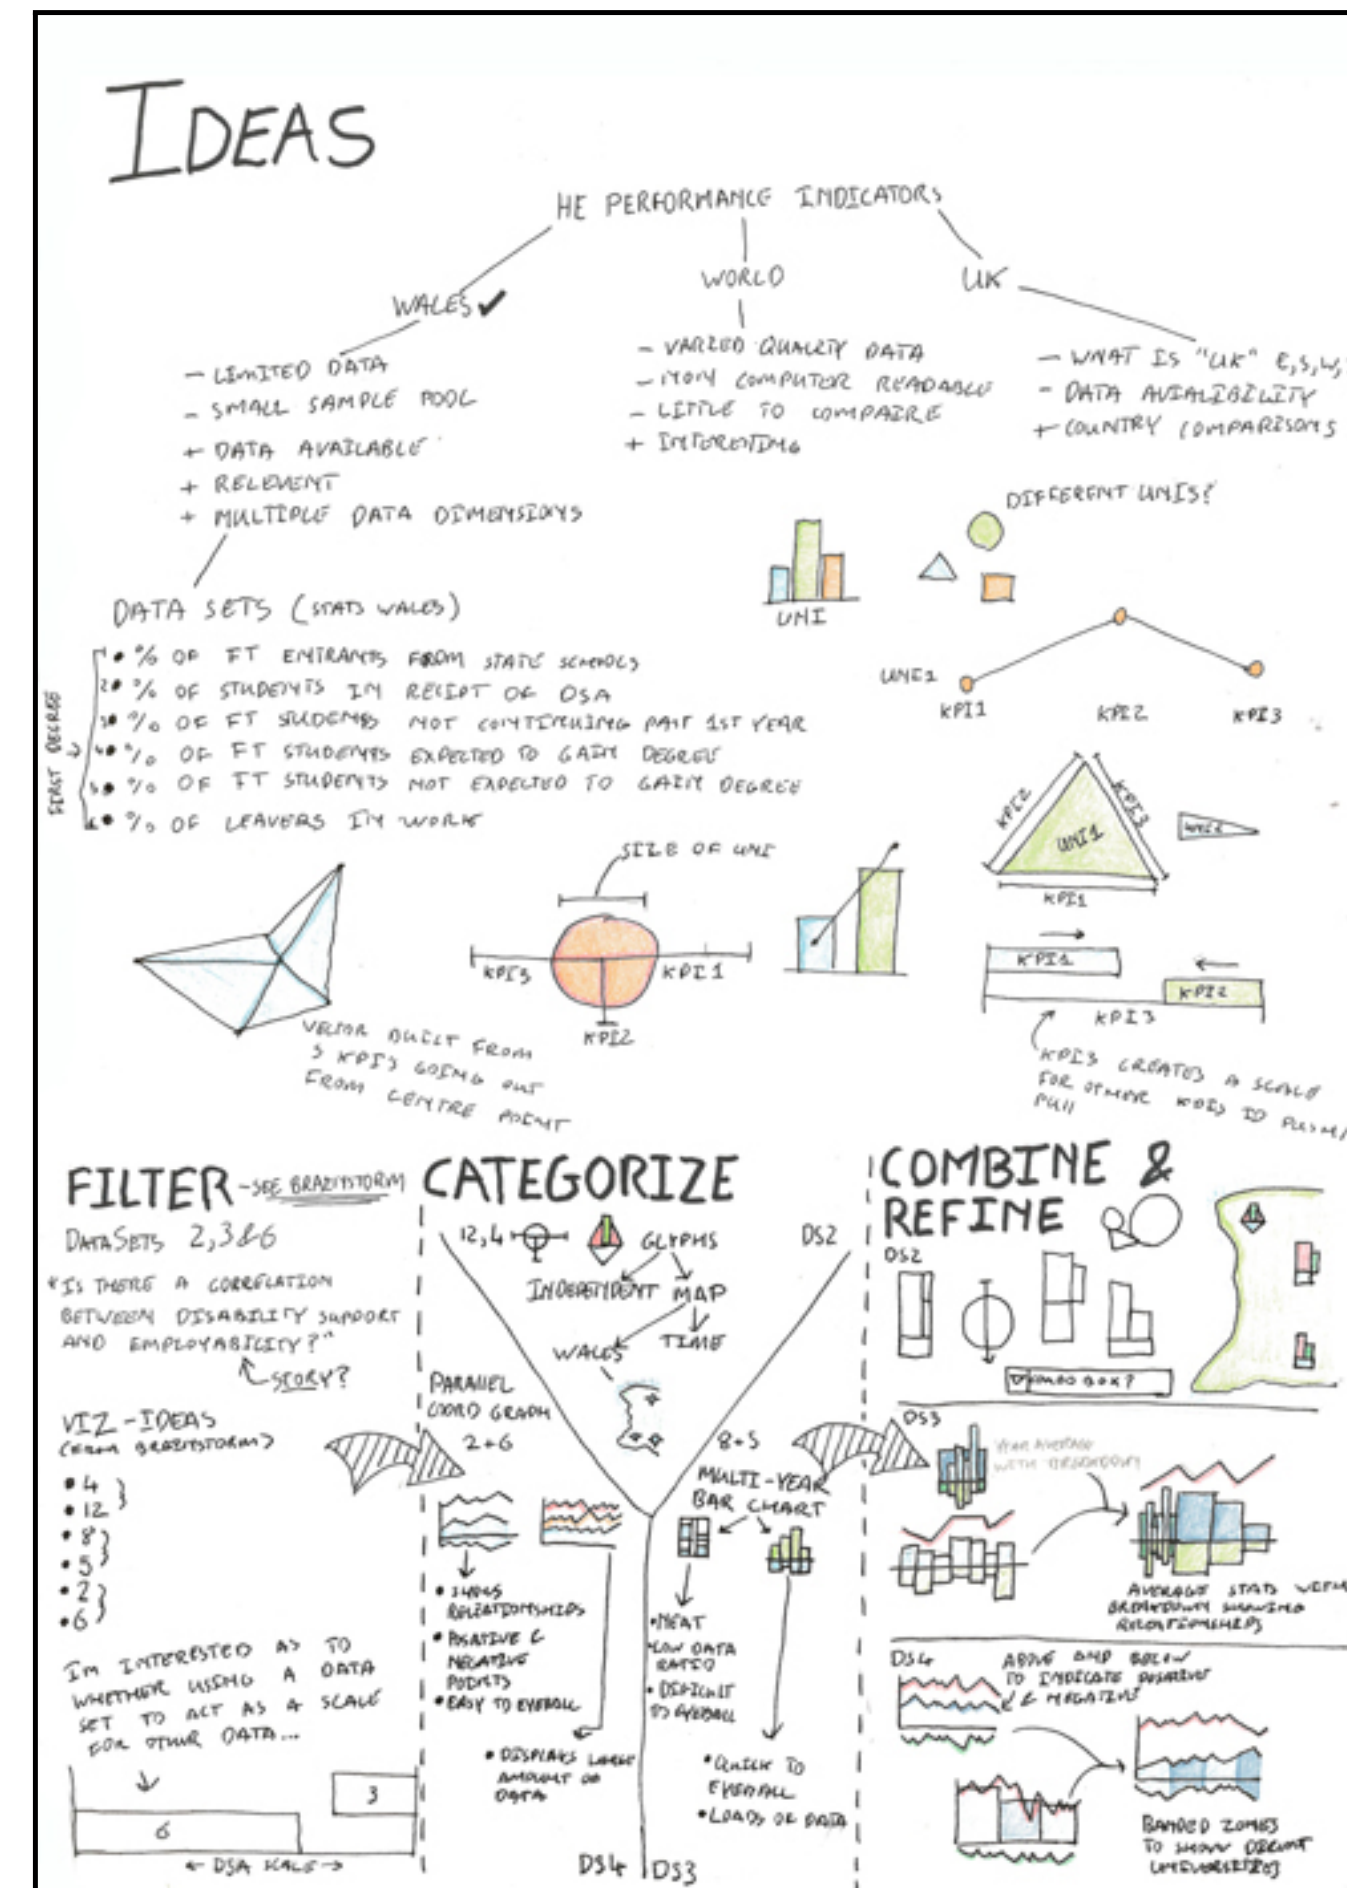 IDEAS
HE PERFORMANCE INDICATORS
WALES ✔
WORLD
UK
- LIMITED DATA
- SMALL SAMPLE POOL
+ DATA AVAILABLE
+ RELEVENT
+ MULTIPLE DATA DIMENSIONS
- VARIED QUALITY DATA
- NON COMPUTOR READABLE
- LITTLE TO COMPAIRE
+ INTERESTING
- WHAT IS "UK" E,S,W,
- DATA AVIALIBILITY
+ COUNTRY COMPARISONS
DIFFERENT UNIS?
UNI
DATA SETS (STATS WALES)
FIRST DEGREE
1 • % OF FT ENTRANTS FROM STATE SCHOOLS
2 • % OF STUDENTS IN RECIPT OF DSA
3 • % OF FT STUDENTS NOT CONTINUING PAST 1ST YEAR
4 • % OF FT STUDENTS EXPECTED TO GAIN DEGREE
5 • % OF FT STUDENTS NOT EXPECTED TO GAIN DEGREE
6 • % OF LEAVERS IN WORK
UNI1
KPI1
KPI2
KPI3
KPI2
KPI3
UNI1
KPI1
UNI2
SIZE OF UNI
KPI3
KPI1
KPI2
VECTOR BUILT FROM
5 KPIS GOING OUT
FROM CENTRE POINT
KPI1
KPI2
KPI3
KPI3 CREATES A SCALE
FOR OTHER KPIS TO PUSH/
PULL
FILTER - SEE BRAINSTORM
DATASETS 2,3&6
"IS THERE A CORRELATION
BETWEEN DISABILITY SUPPORT
AND EMPLOYABILITY?"
STORY?
VIZ-IDEAS
(FROM BRAINSTORM)
• 4
• 12
• 8
• 5
• 2
• 6
I'M INTERESTED AS TO
WHETHER USING A DATA
SET TO ACT AS A SCALE
FOR OTHER DATA...
3
6
← DSA SCALE →
CATEGORIZE
12,4
GLYPHS
DS2
INDEPENDENT MAP
WALES
TIME
PARALLEL
COORD GRAPH
2+6
8+5
MULTI-YEAR
BAR CHART
• SHOWS
RELEATIONSHIPS
• POSATIVE &
NEGATIVE
POINTS
• EASY TO EYEBALL
• DISPLAYS LARGE
AMOUNT OF
DATA
• NEAT
• LOW DATA
RATIO
• DIFICULT
TO EYEBALL
• QUICK TO
EYEBALL
• LOADS OF DATA
DS4
DS3
COMBINE &
REFINE
DS2
COMBO BOX?
DS3
YEAR AVERAGE
WITH BREAKDOWN
AVERAGE STATS WITH
BREAKDOWN SHOWING
RELATIONSHIPS
DS4
ABOVE AND BELOW
TO INDICATE POSATIVE
& NEGATIVE
BANDED ZONES
TO SHOW
UNIVERSITIES